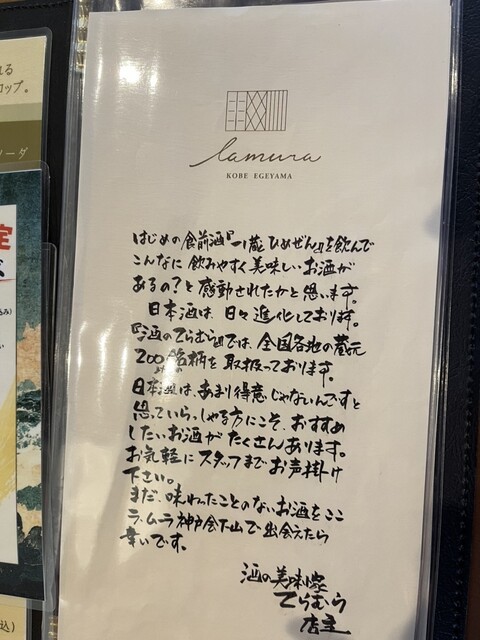 れる
カップ。
ソーダ
定
込み)
い
込)
lamura
KOBE EGEYAMA
はじめの食前酒『一ノ蔵 ひめぜん』を飲んで
こんなに飲みやすく美味しいお酒が
あるの?と感動されたかと思います。
日本酒は、日々進化しております。
『酒のてらむら』では、全国各地の蔵元
200銘柄を取扱っております。
日本酒は、あまり得意じゃないんですと
思っていらっしゃる方にこそ、おすすめ
したいお酒がたくさんあります。
お気軽にスタッフまでお声掛け
下さい。
まだ、味わったことのないお酒をここ
ラ・ムラ神戸会下山で出会えたら
幸いです。
酒の美味家
てらむら
店主